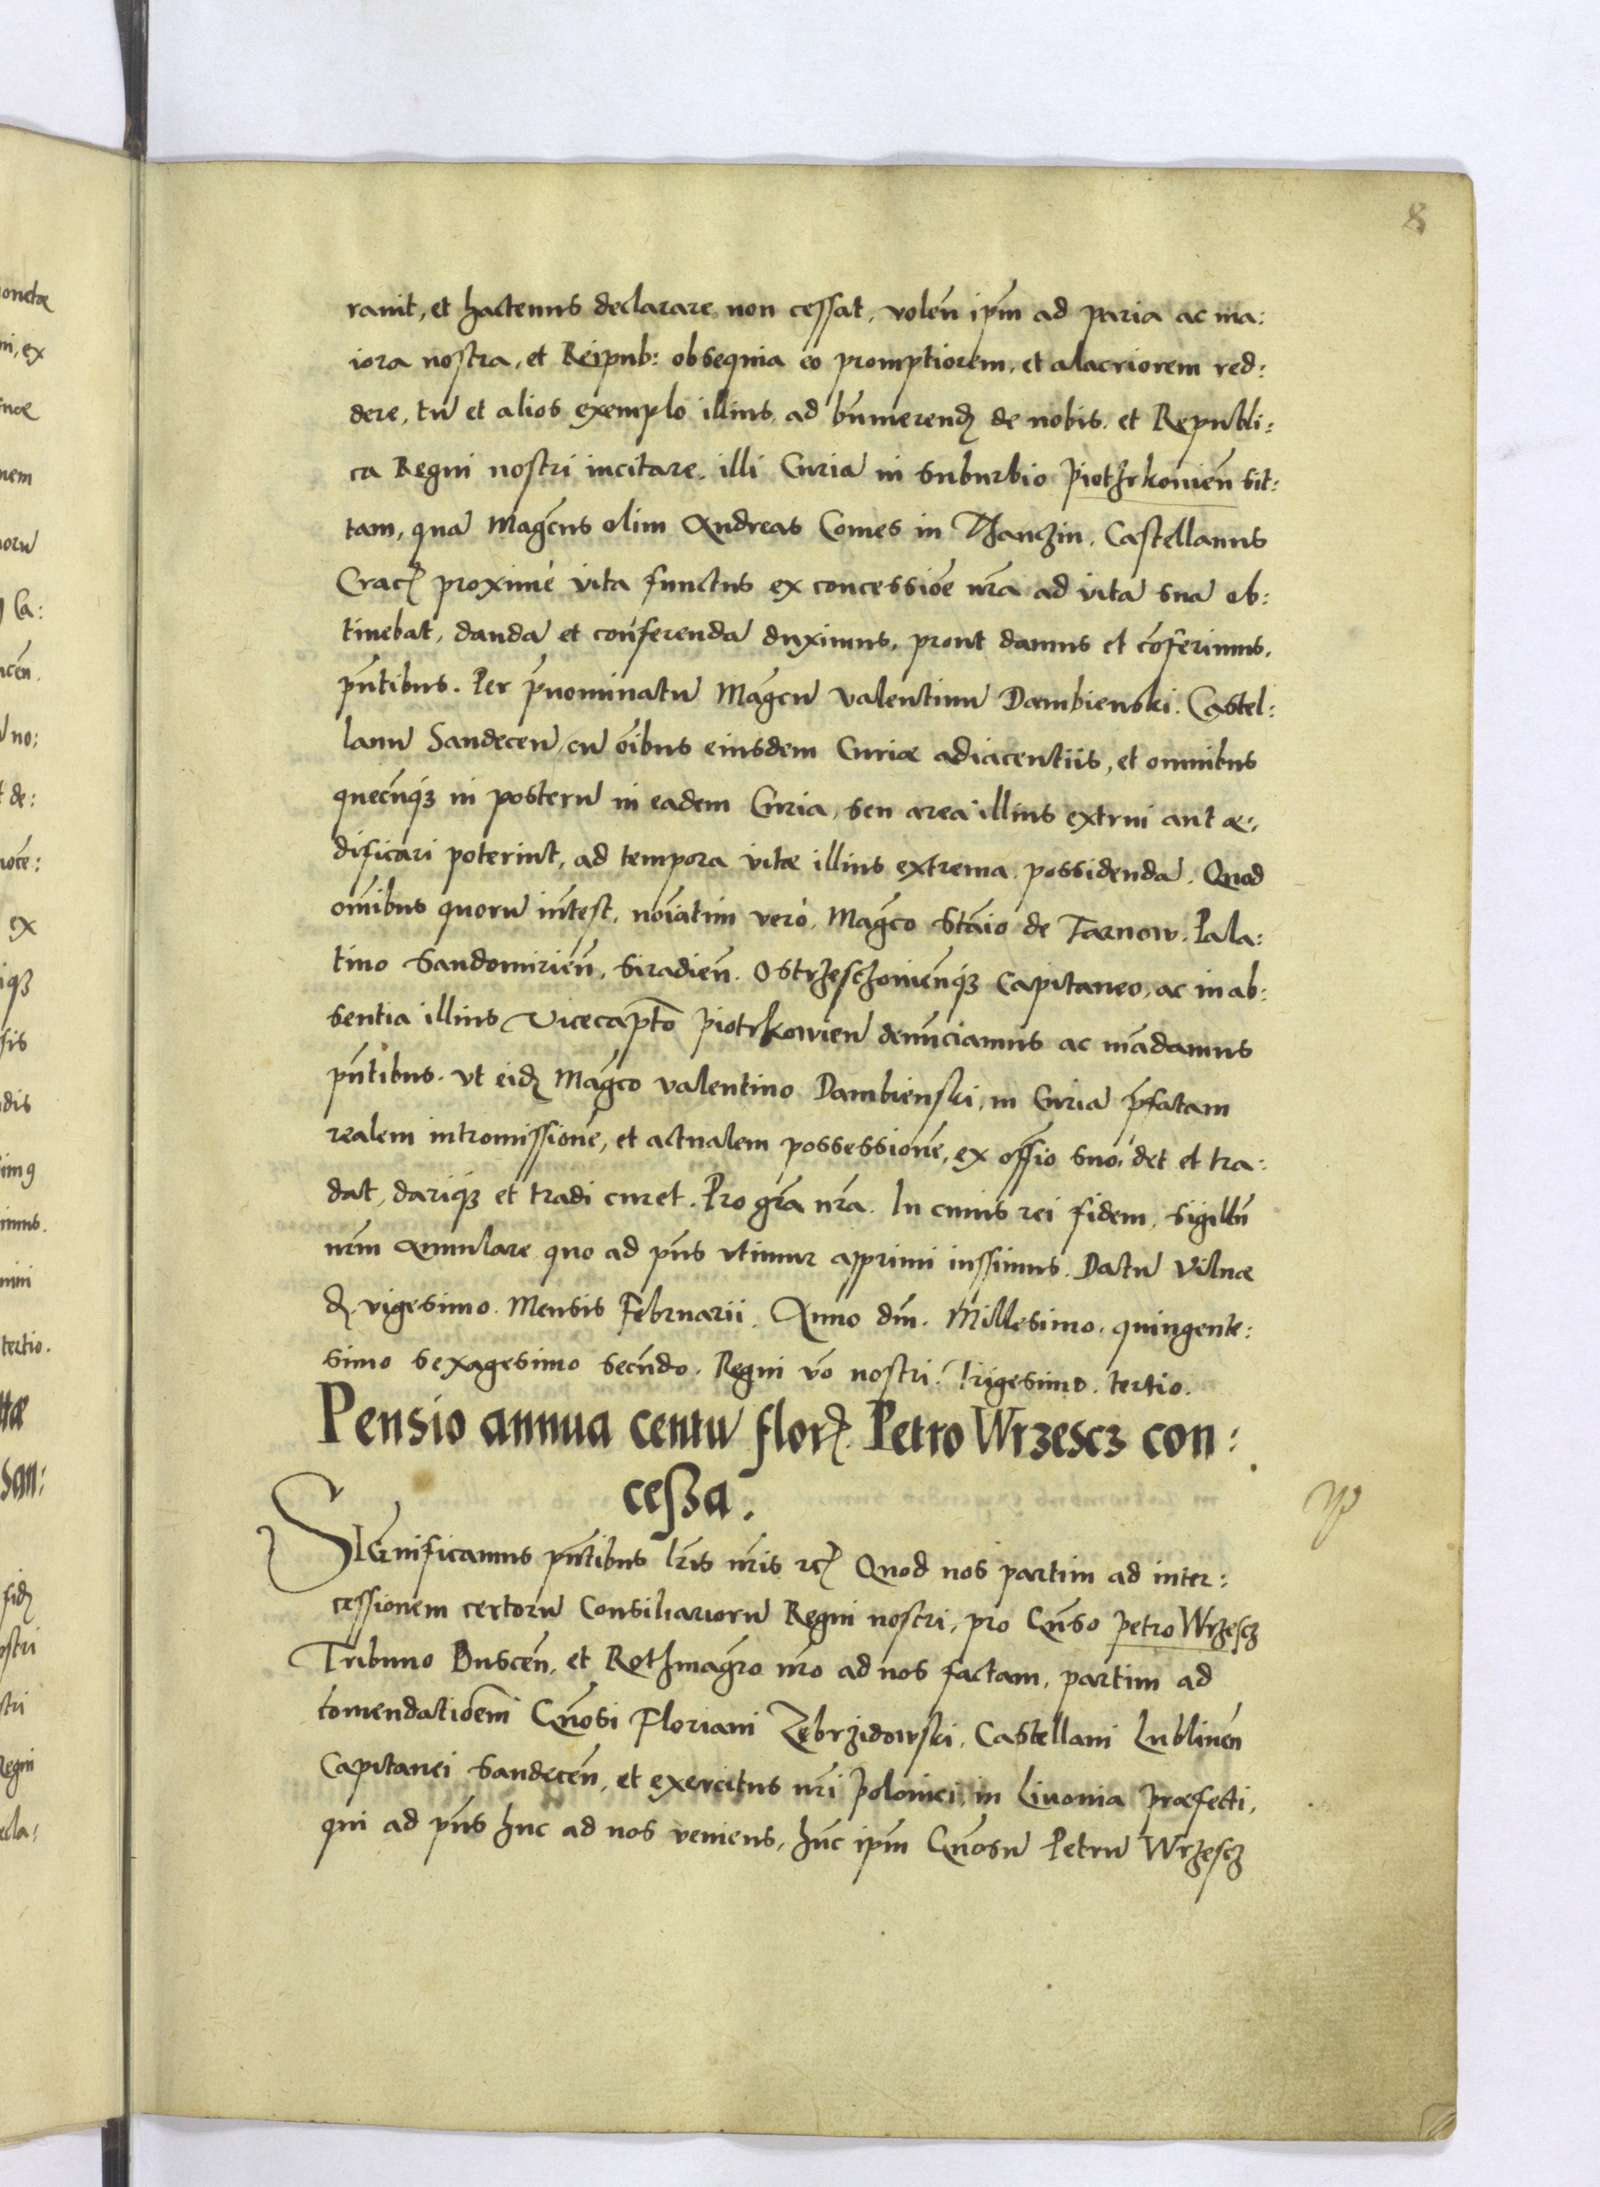 8
rauit, et hactenus declarare non cessat, volen̄ ip̄m ad paria ac ma:
iora nostra, et Reipub: obsequia eo promptiorem, et alacriorem red:
dere, tū et alios exemplo illius, ad bn̄merend de nobis, et Republi:
ca Regni nostri incitare, illi Curiā in suburbio Piotrkouien̄ sit:
tam, quā Mag̃cus olim Andreas Comes in Thanczin, Castellanus
Crac̄ proxime vita functus ex concessiōe nr̄a ad vitā suā ob:
tinebat, dandā et conferendā duximus, prout damus et cōferimus,
pn̄tibus. Per p̄nominatū Mag̃cū Valentinū Dambienski, Castel:
lanū Sandecen̄, cū oībus eiusdem Curiæ adiacentiis, et omnibus
quecūq3 in posterū in eadem Curia, seu area illius extrui aut æ:
dificari poterint, ad tempora vitæ illius extrema possidendā. Quod
om̄ibus quorū int̄est, noīatim vero, Mag̃co Stāio de Tarnow, Pala:
tino Sandomirien̄, Siradien̄, Ostrzeschouien̄q3 Capitaneo, ac in ab:
sentia illius Vicecapt̄o Piotrkowien̄ denūciamus ac mādamus
pn̄tibus, vt eid Mag̃co Valentino Dambienski, in Curiā p̄fatam
realem intromissionē, et actualem possessionē, ex offīo suo, det et tra:
dat, dariq3 et tradi curet. Pro gr̄a nr̄a. In cuius rei fidem, Sigillū
nr̄m Annulare quo ad pn̄s vtimur apprimi iussimus. Datū Vilnæ
d. vigesimo. Mensis Februarii. Anno dm̄. Millesimo, quingente:
simo sexagesimo secūdo. Regni v̄o nostri. Trigesimo, tertio.
Pensio annua centū flor. Petro Wrzescz con:
cessa.
SIGnificamus pn̄tibus lr̄is nr̄is etc̄ Quod nos partim ad inter:
cessionem certorū Consiliariorū Regni nostri, pro Gn̄so Petro Wrzescz
Tribuno Buscen̄, et Rothmag̃ro nr̄o ad nos factam, partim ad
cōmendatioēm Gn̄osi Floriani Zebrzidowski, Castellani Lublinen̄
Capitanei Sandecen̄, et exercitus nr̄i Polonici, in Liuonia Præfecti,
qui ad pn̄s huc ad nos veniens, hūc ip̄m Gn̄osū Petrū Wrzescz